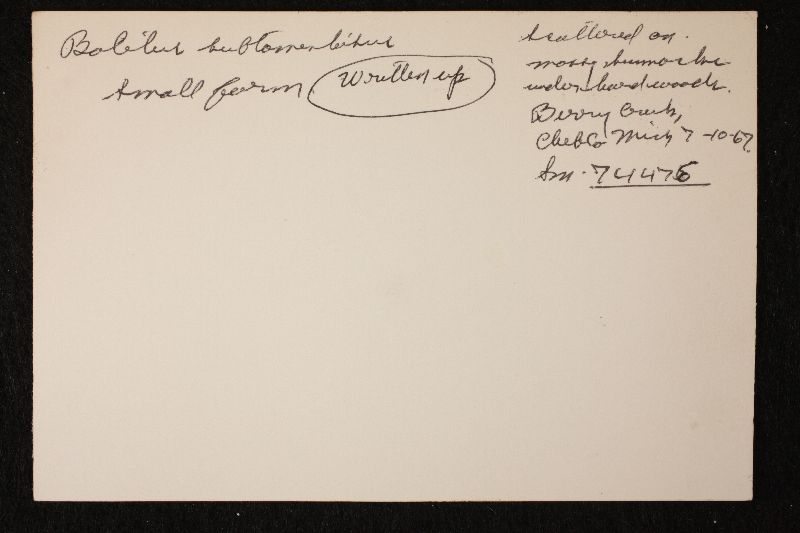 Boletus subtomentosus
small form
Written up
Scattered on
mossy hummocks
under hardwoods.
Berry Creek,
Cheb Co Mich 7-10-67
Sm. 74475